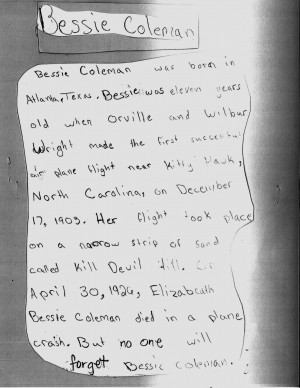 Bessie Coleman
Bessie Coleman was born in
Atlanta, Texas. Bessie was eleven years
old when Orville and Wilbur
Wright made the first successful
air plane flight near Kitty Hawk,
North Carolina, on December
17, 1903. Her flight took place
on a narrow strip of sand
called Kill Devil Hill.
April 30, 1926, Elizabeath
Bessie Coleman died in a plane
crash. But no one will
forget Bessie Coleman.